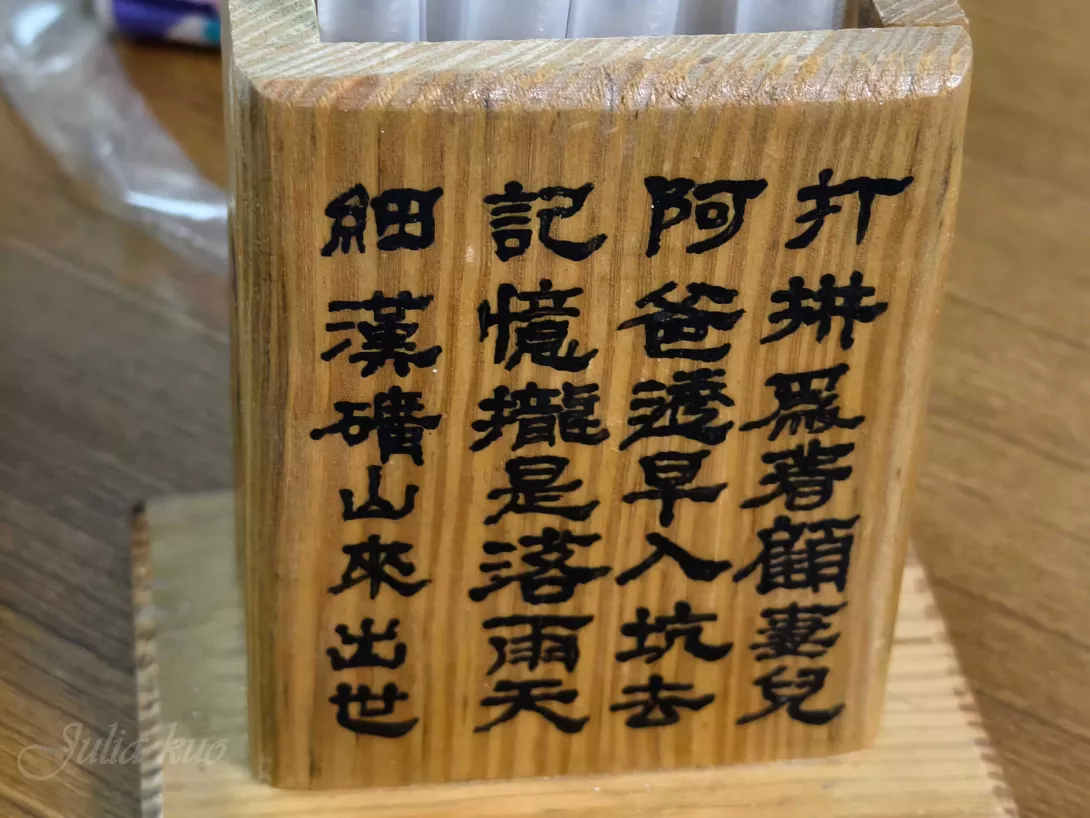 細漢礦山來出世
記憶攏是落雨天
阿爸透早入坑去
打拼爲著顧妻兒
Julia kuo